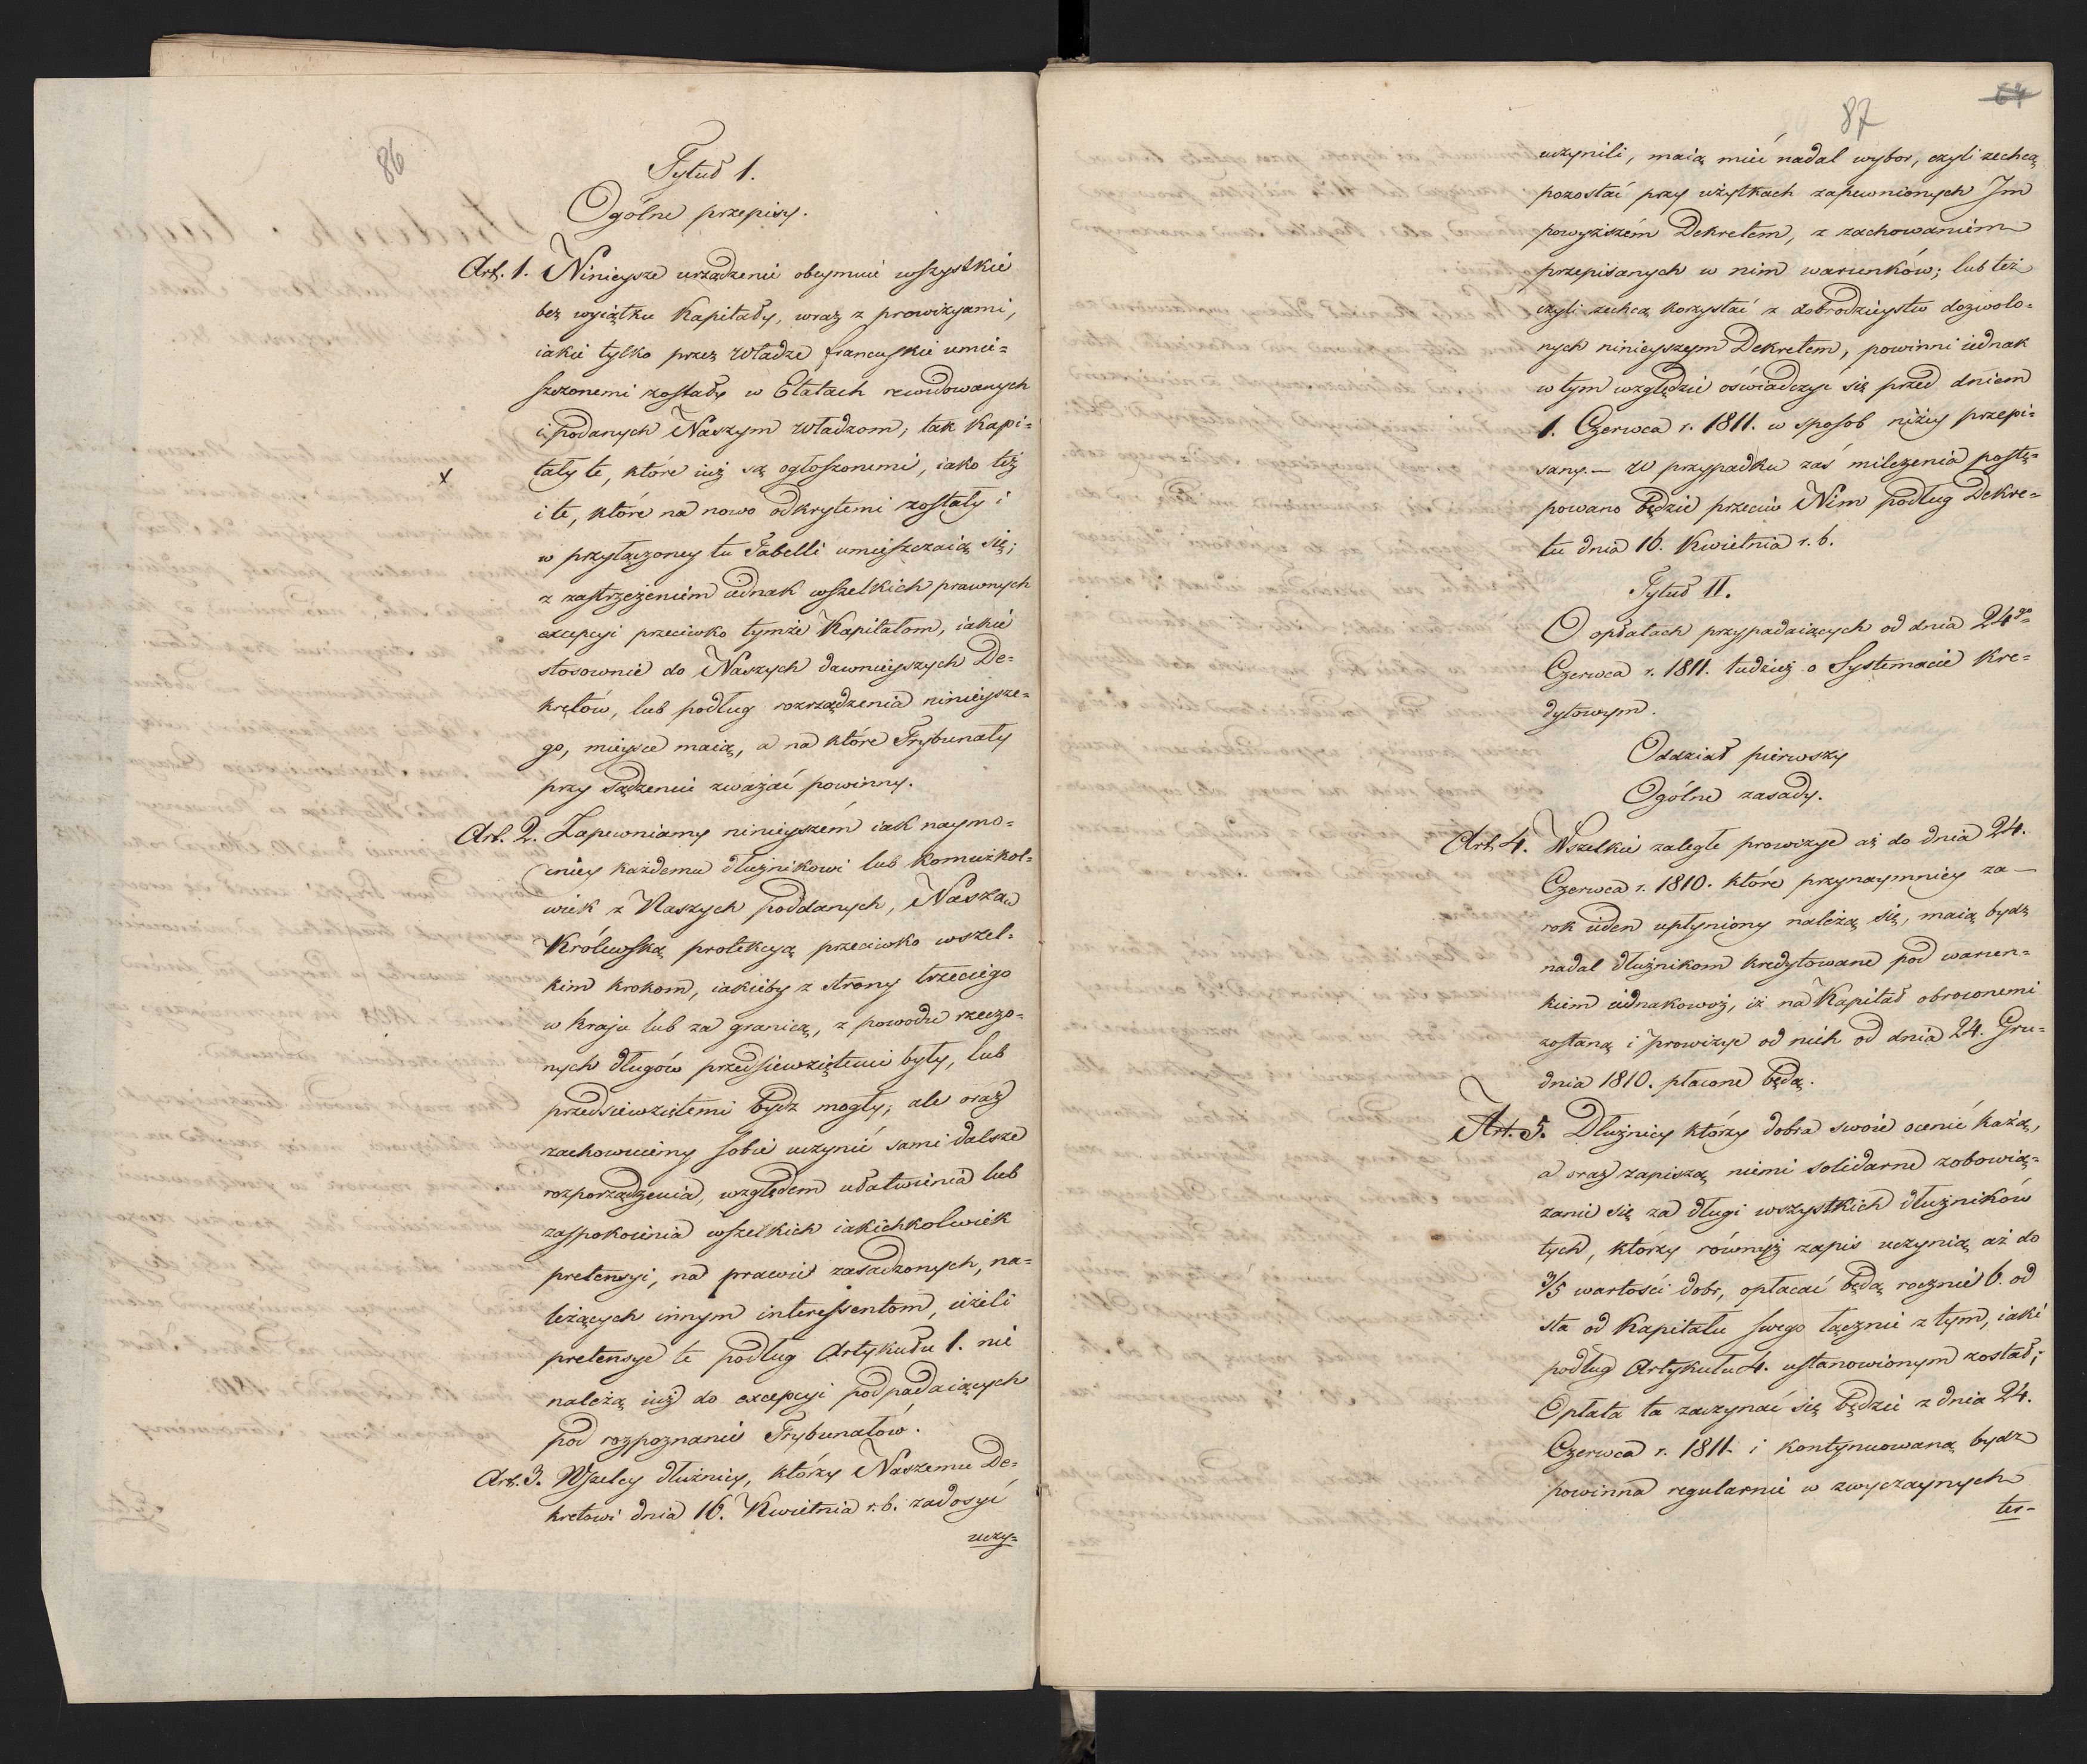 86
Tytuł 1.
Ogólne przepisy.
Art. 1. Ninieysze urządzenie obeymuie wszystkie
bez wyiątku Kapitały, wraz z prowizyami,
iakie tylko przez Władze francuskie umie=
szczonemi zostały w Etatach rewidowanych
i podanych Naszym Władzom, tak Kapi=
x
tały te, które iuż są ogłoszonemi, iako też
i te, które na nowo odkrytemi zostały i
w przyłączoney tu Tabelli umieszczaią się;
z zastrzeżeniem iednak wszelkich prawnych
excepcyi przeciwko tymże Kapitałom, iakie
stosownie do Naszych dawnieyszych De=
kretów, lub podług rozrządzenia ninieysze=
go, mieysce maią, a na które Trybunały
przy sądzeniu zważać powinny.
Art. 2. Zapewniamy ninieyszém iak naymo=
cniey każdemu dłużnikowi lub komużkol=
wiek z Naszych poddanych, Naszą
Królewską protekcyą przeciwko wszel=
kim krokom, iakieby z strony trzeciego
w kraju lub za granicą, z powodu rzeczo=
nych długów przedsiewziętemi były, lub
przedsiewziętemi bydz mogły; ale oraz
zachowuiemy sobie uczynić sami dalsze
rozporządzenia, względem ułatwienia lub
zaspokoienia wszelkich iakichkolwiek
pretensyi, na prawie zasadzonych, na=
leżących innym interessentom, ieżeli
pretensye te podług Artykułu 1. nie
należą iuż do excepcyi podpadaiących
pod rozpoznanie Trybunałów.
Art. 3. Wszelcy dłużnicy, którzy Naszemu De=
kretowi dnia 16. Kwietnia r. b. zadosyć
uczy=
64
87
uczynili, maią mieć nadal wybor, czyli zechcą
pozostać przy użytkach zapewnionych Im
powyższém Dekretem, z zachowaniem
przepisanych w nim warunków; lub też
czyli zechcą korzystać z dobrodzieystw dozwolo=
nych ninieyszym Dekretem, powinni iednak
w tym względzie oświadczyć się przed dniem
1. Czerwca r. 1811. w sposob niżey przepi=
sany. — W przypadku zaś milczenia postę=
powano będzie przeciw Nim podług Dekre=
tu dnia 16. Kwietnia r. b.
Tytuł II.
O opłatach przypadaiących od dnia 24go
Czerwca r. 1811. tudzież o Systemacie Kre=
dytowym.
Oddział pierwszy
Ogólne zasady.
Art. 4. Wszelkie zaległe prowizye aż do dnia 24.
Czerwca r. 1810. które przynaymniey za —
rok ieden upłyniony należą się, maią bydz
nadal dłużnikom kredytowane pod warun=
kiem iednakowoż, iż na Kapitał obroconemi
zostaną i prowizye od nich od dnia 24. Gru=
dnia 1810. płacone będą.
Art. 5. Dłużnicy którzy dobra swoie ocenić każą,
a oraz zapiszą niemi solidarne zobowią=
zanie się za długi wszystkich dłużników
tych, którzy równyż zapis uczynią aż do
3/5 wartości dobr, opłacać będą rocznie 6. od
sta od Kapitału swego łącznie z tym, iaki
podług Artykułu 4. ustanowionym został;
Opłata ta zaczynać się będzie z dnia 24.
Czerwca r. 1811. i kontynuowaną bydz
powinna regularnie w zwyczaynych
ter=